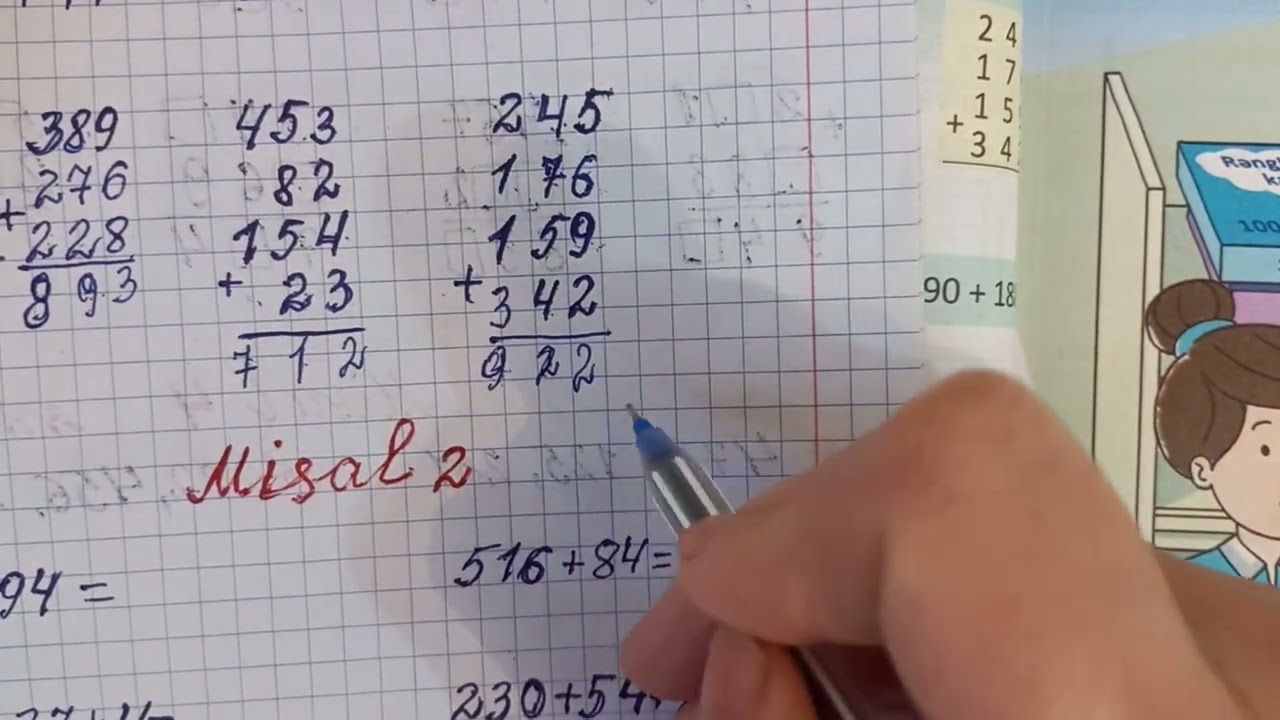 389
276
+ 228
893
453
82
154
+ 23
712
245
176
159
+ 342
922
Misal 2
94 =
516+84=
230+54
24
17
15
+ 34
90 + 18
100